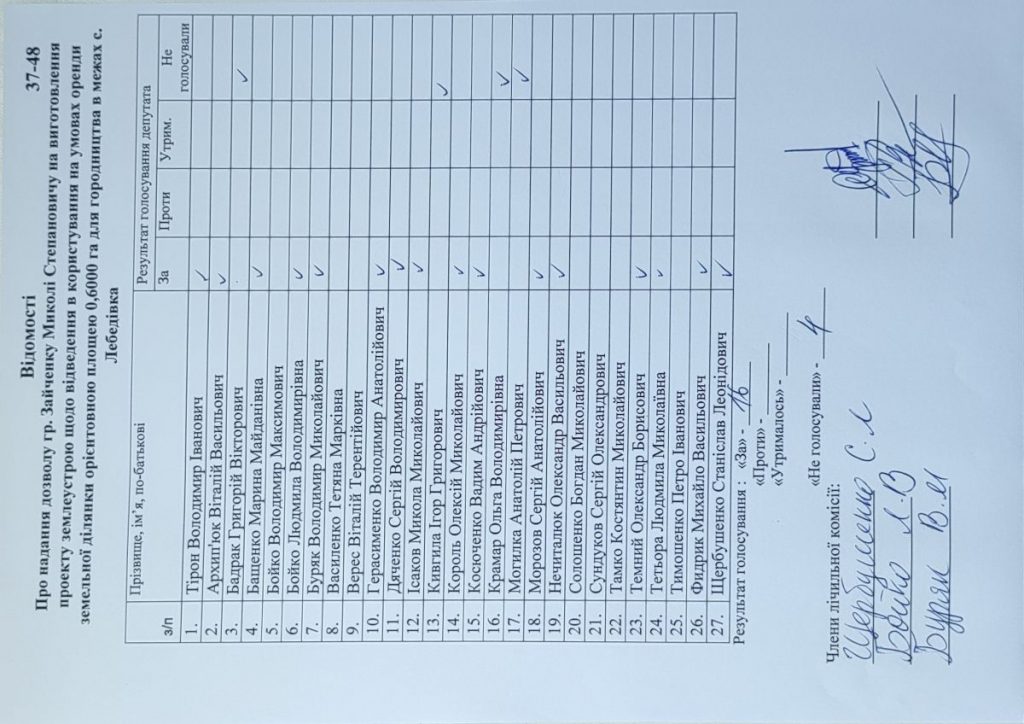 Відомості 37-48
Про надання дозволу гр. Зайченку Миколі Степановичу на виготовлення
проекту землеустрою щодо відведення в користування на умовах оренди
земельної ділянки орієнтовною площею 0,6000 га для городництва в межах с.
Лебедівка
з/п Прізвище, ім’я, по-батькові Результат голосування депутата
За Проти Утрим. Не
голосували
1. Тірон Володимир Іванович ✓
2. Архип'юк Віталій Васильович ✓
3. Бадрак Григорій Вікторович ✓
4. Бащенко Марина Майданівна ✓
5. Бойко Володимир Максимович
6. Бойко Людмила Володимирівна ✓
7. Буряк Володимир Миколайович ✓
8. Василенко Тетяна Марківна
9. Верес Віталій Терентійович
10. Герасименко Володимир Анатолійович ✓
11. Дяченко Сергій Володимирович ✓
12. Ісаков Микола Миколайович ✓
13. Кивгила Ігор Григорович ✓
14. Король Олексій Миколайович ✓
15. Косюченко Вадим Андрійович ✓
16. Крамар Ольга Володимирівна ✓
17. Могилка Анатолій Петрович ✓
18. Морозов Сергій Анатолійович ✓
19. Нечиталюк Олександр Васильович ✓
20. Солошенко Богдан Миколайович
21. Сундуков Сергій Олександрович
22. Тамко Костянтин Миколайович
23. Темний Олександр Борисович ✓
24. Тетьора Людмила Миколаївна ✓
25. Тимошенко Петро Іванович
26. Фидрик Михайло Васильович ✓
27. Щербушенко Станіслав Леонідович ✓
Результат голосування : «За» - 16
«Проти» -
«Утрималось» -
«Не голосували» - 4
Члени лічильної комісії:
Щербушенко С.Л
Бойко Л.В
Буряк В.М